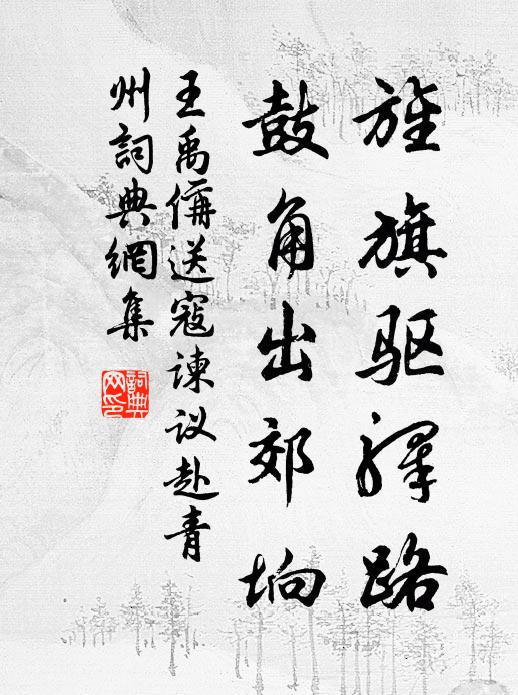 旌旗驱驛路
鼓角出郊坰
王禹偁送寇諫议赴青
州詞典網集
詞典网印